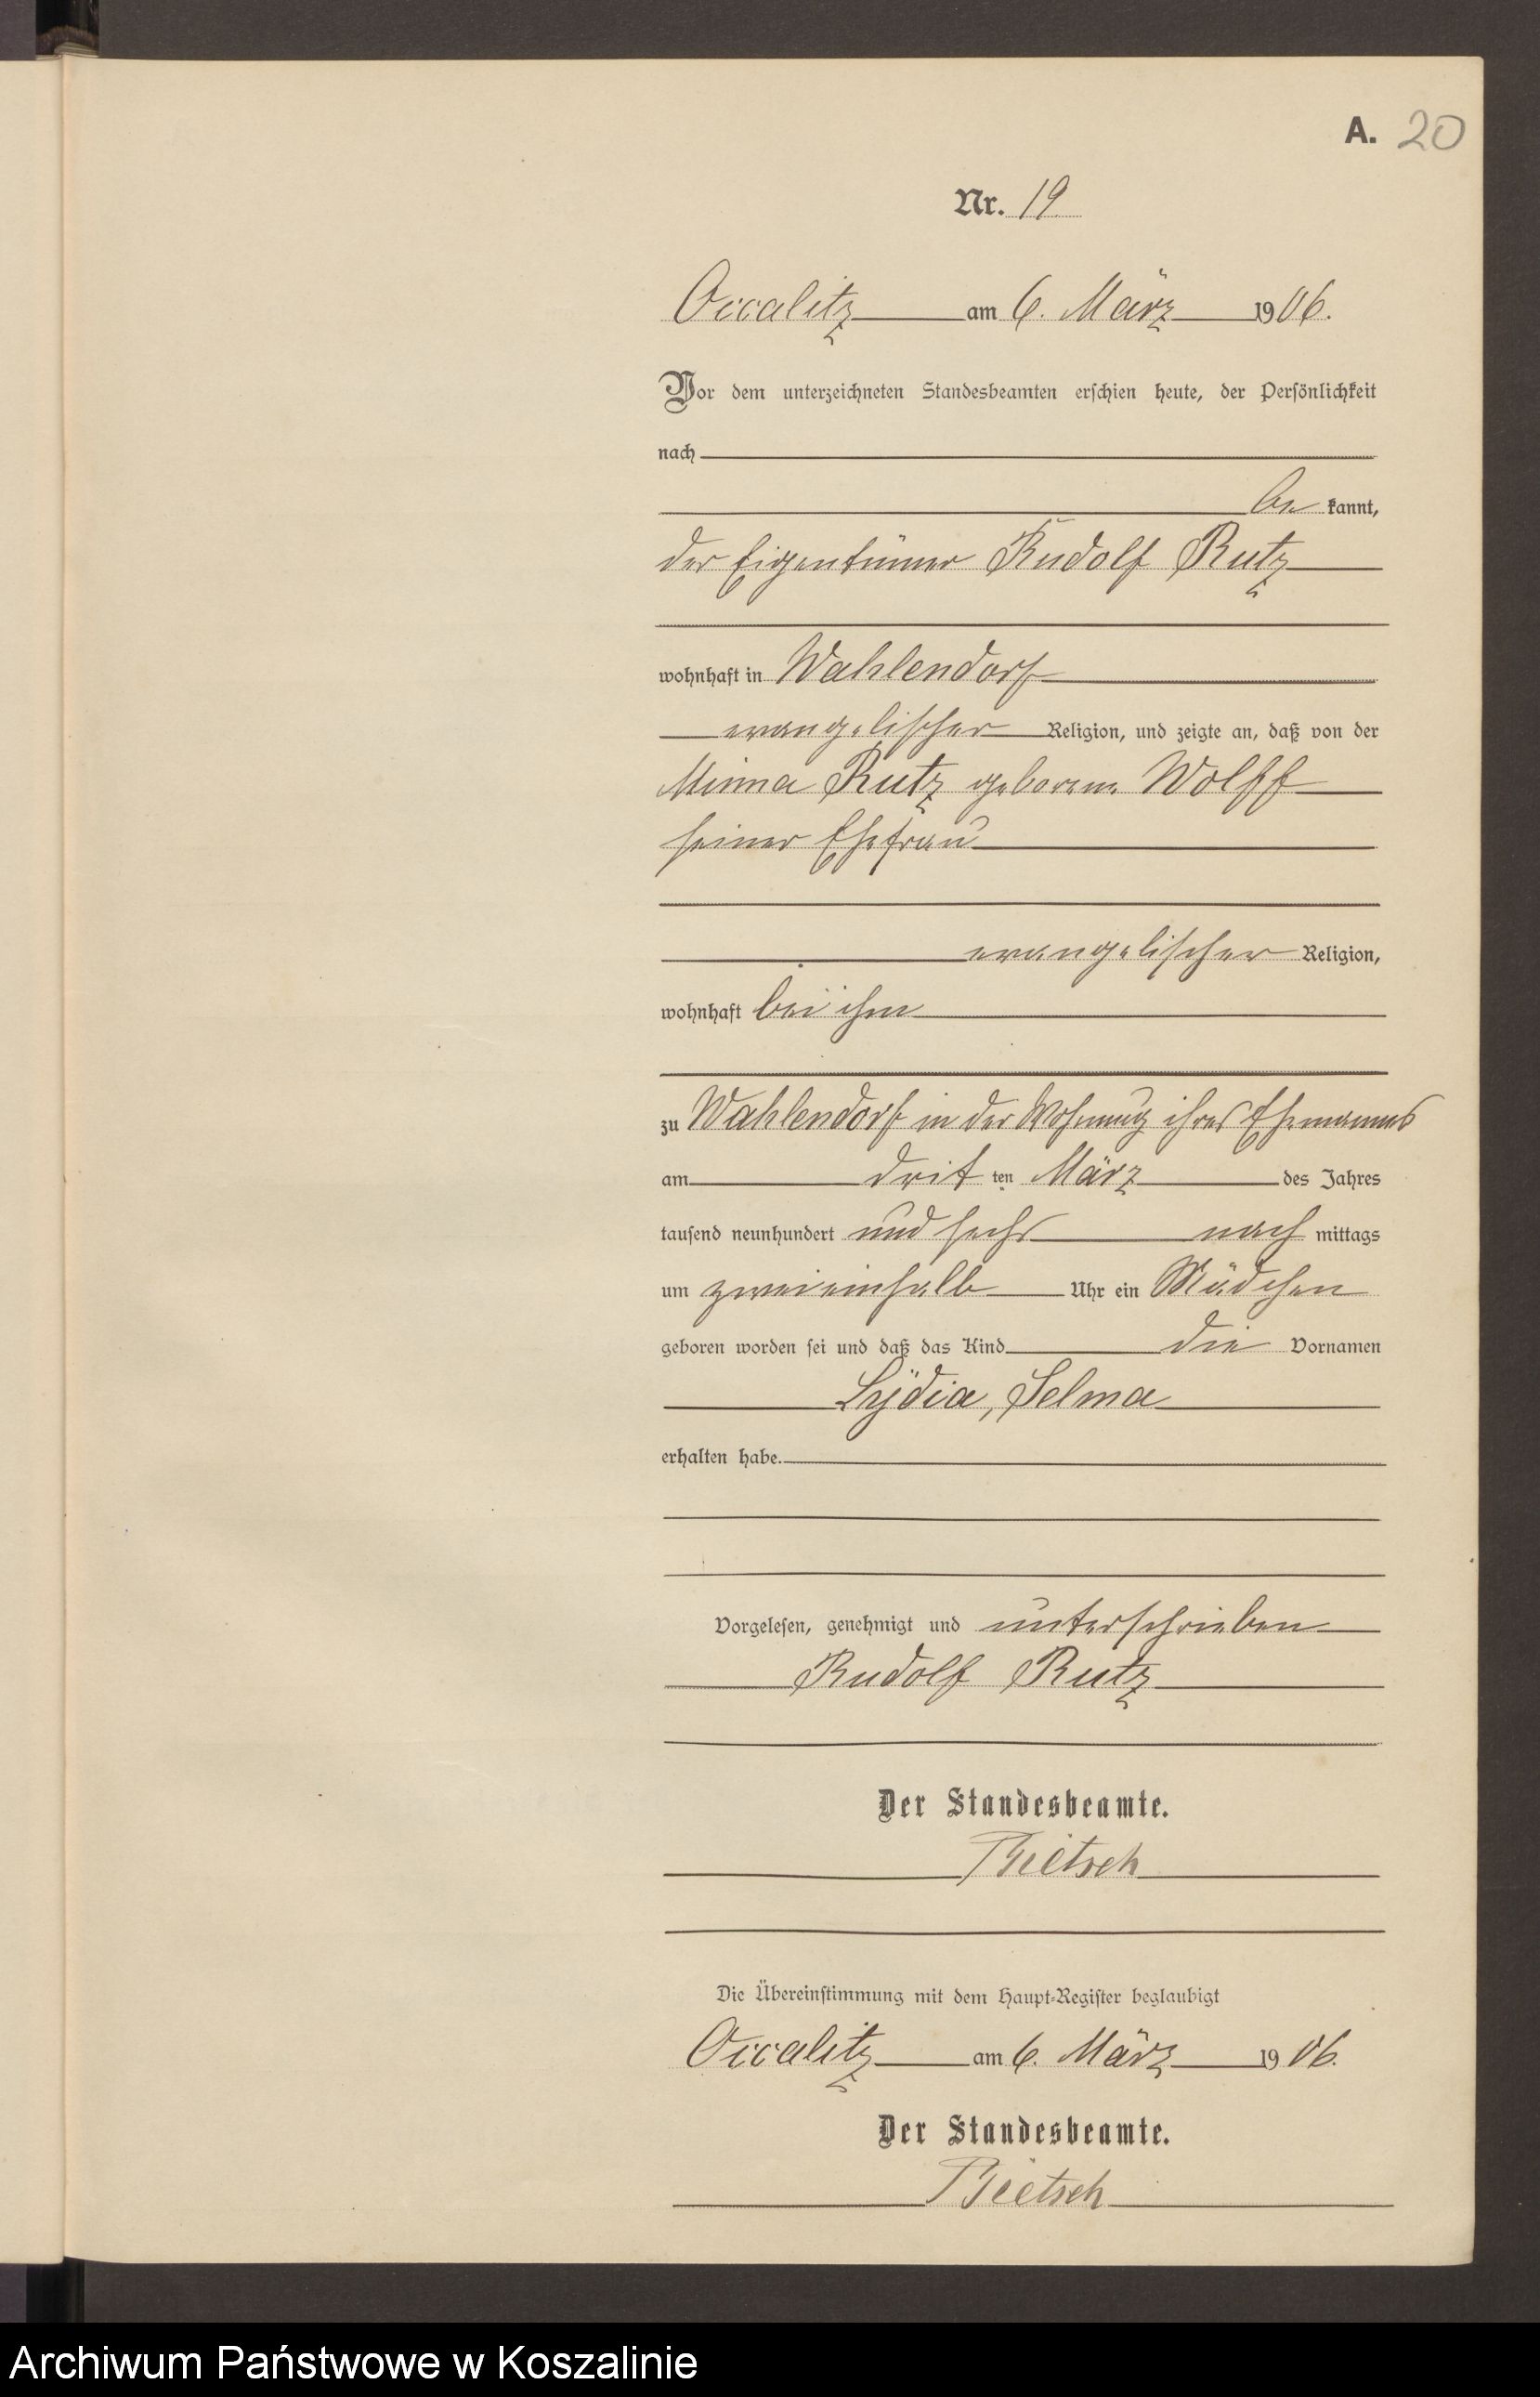 A. 20
Nr. 19
Occalitz am 6. März 1906.
Vor dem unterzeichneten Standesbeamten erschien heute, der Persönlichkeit
nach
be kannt,
der Eigentümer Rudolf Rutz
wohnhaft in Wahlendorf
evangelischer Religion, und zeigte an, daß von der
Minna Rutz geborene Wolff
seiner Ehefrau
evangelischer Religion,
wohnhaft bei ihm
zu Wahlendorf in der Wohnung ihres Ehemannes
am drit ten März des Jahres
tausend neunhundert und sechs nach mittags
um zweieinhalb Uhr ein Mädchen
geboren worden sei und daß das Kind die Vornamen
Lydia, Selma
erhalten habe.
Vorgelesen, genehmigt und unterschrieben
Rudolf Rutz
Der Standesbeamte.
Die Übereinstimmung mit dem Haupt-Register beglaubigt
Occalitz am 6. März 1906.
Der Standesbeamte.
Archiwum Państwowe w Koszalinie